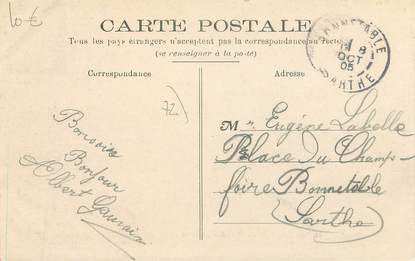 10 €
CARTE POSTALE
Tous les pays étrangers n'acceptent pas la correspondance au recto
(se renseigner à la poste)
BONNETABLE
8
OCT
05
SARTHE
Correspondance
Adresse
72)
Bonsoir
Bonjour
Albert
M r. Eugène Labelle
Place du Champ-
foire Bonnetable
(Sarthe)